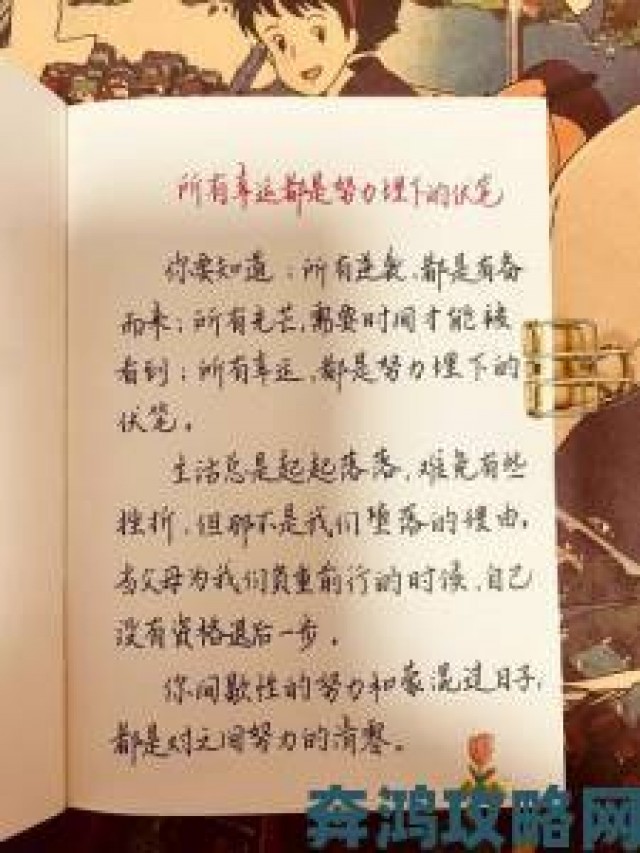 所有幸运都是努力埋下的伏笔
你要知道：所有逆袭，都是有备
而来；所有光芒，需要时间才能被
看到；所有幸运，都是努力埋下的
伏笔。
生活总是起起落落，难免有些
挫折，但那不是我们堕落的理由。
当父母为我们负重前行的时候，自己
没有资格退后一步。
你间歇性的努力和蒙混过日子，
都是对之前努力的清零。
奔鸿攻略网